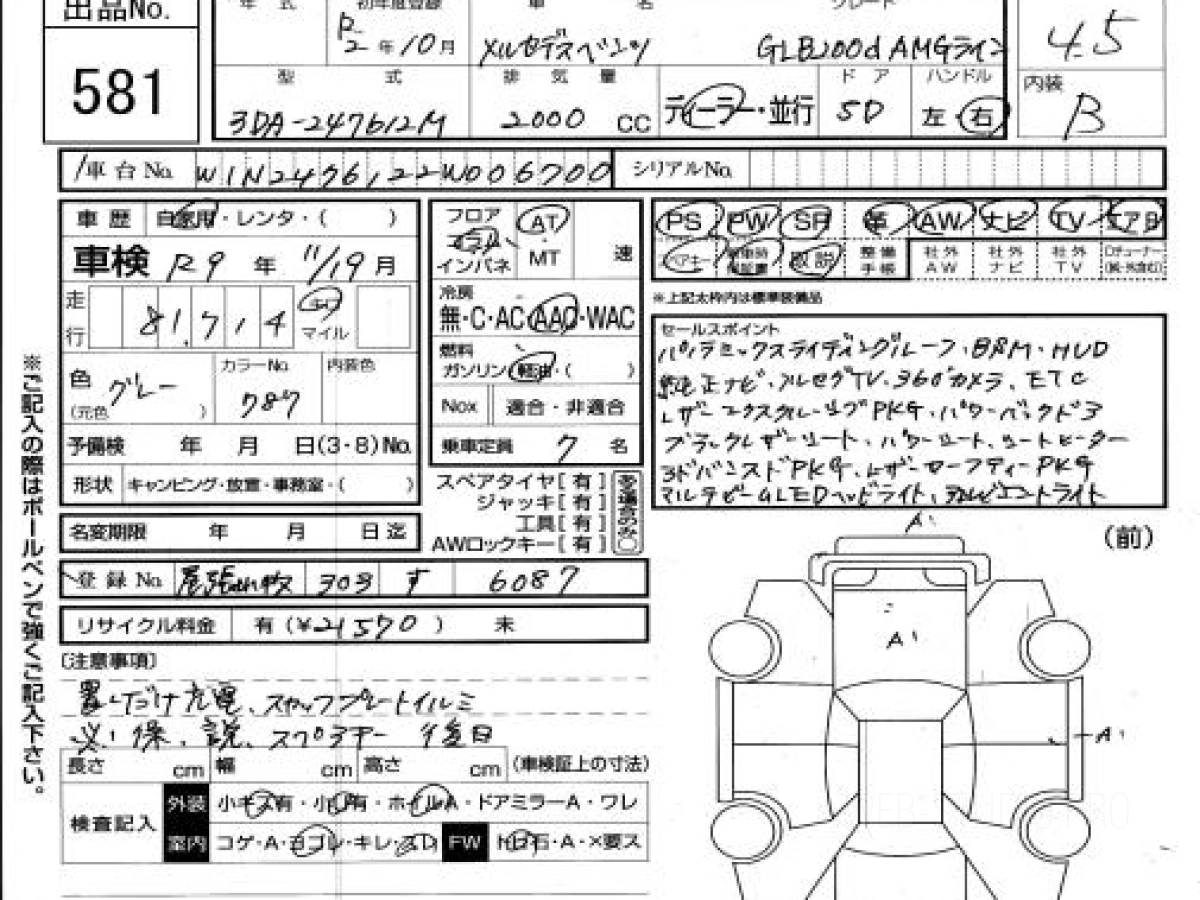 出品No.
581
年 式
初年度登録
R2 年 10 月
車 名
メルセデスベンツ
グレード
GLB200d AMGライン
4.5
型 式
3DA-247612M
排 気 量
2000 CC
ディーラー・並行
ド ア
5D
ハンドル
左 右
内装
B
車 台 No.
W1N2476122W006700
シリアルNo.
車 歴 自家用・レンタ・( )
車検 R9 年 11/19 月
走行 81,714
マイル
色 グレー
(元色 )
カラーNo.
787
内装色
予備検 年 月 日(3・8)No.
形状 キャンピング・放置・事務室・( )
名変期限 年 月 日迄
フロア
コラム
インパネ
AT
MT
速
冷房
無・C・AC・AAC・WAC
燃料
ガソリン・軽油・( )
Nox 適合・非適合
乗車定員 7 名
スペアタイヤ[ 有 ]
ジャッキ[ 有 ]
工具[ 有 ]
AWロックキー[ 有 ]
PS PW SR 革 AW ナビ TV エアB
スペアキー 取説 整備手帳 社外AW 社外ナビ 社外TV
※上記太枠内は標準装備品
セールスポイント
パノラミックスライディングルーフ・BSM・HUD
純正ナビ、フルセグTV、360°カメラ、ETC
レザーエクスクルーシブPKG・パワーバックドア
ブラックレザーシート、パワーシート、シートヒーター
アドバンスドPKG、レザーセーフティーPKG
マルチビームLEDヘッドライト、アンビエントライト
登 録 No. 尾張小牧 303 す 6087
リサイクル料金 有 (¥21570 ) 未
〔注意事項〕
置くだけ充電、スカッフプレートイルミ
保、説、スペアキー 後日
長さ cm 幅 cm 高さ cm (車検証上の寸法)
検査記入
外装 小キズ有・小凹有・ホイルA・ドアミラーA・ワレ
室内 コゲ・A・ヨゴレ・キレ・スレ FW トビ石・A・×要ス
(前)
A1
A1
A1
※ご記入の際はボールペンで強くご記入下さい。